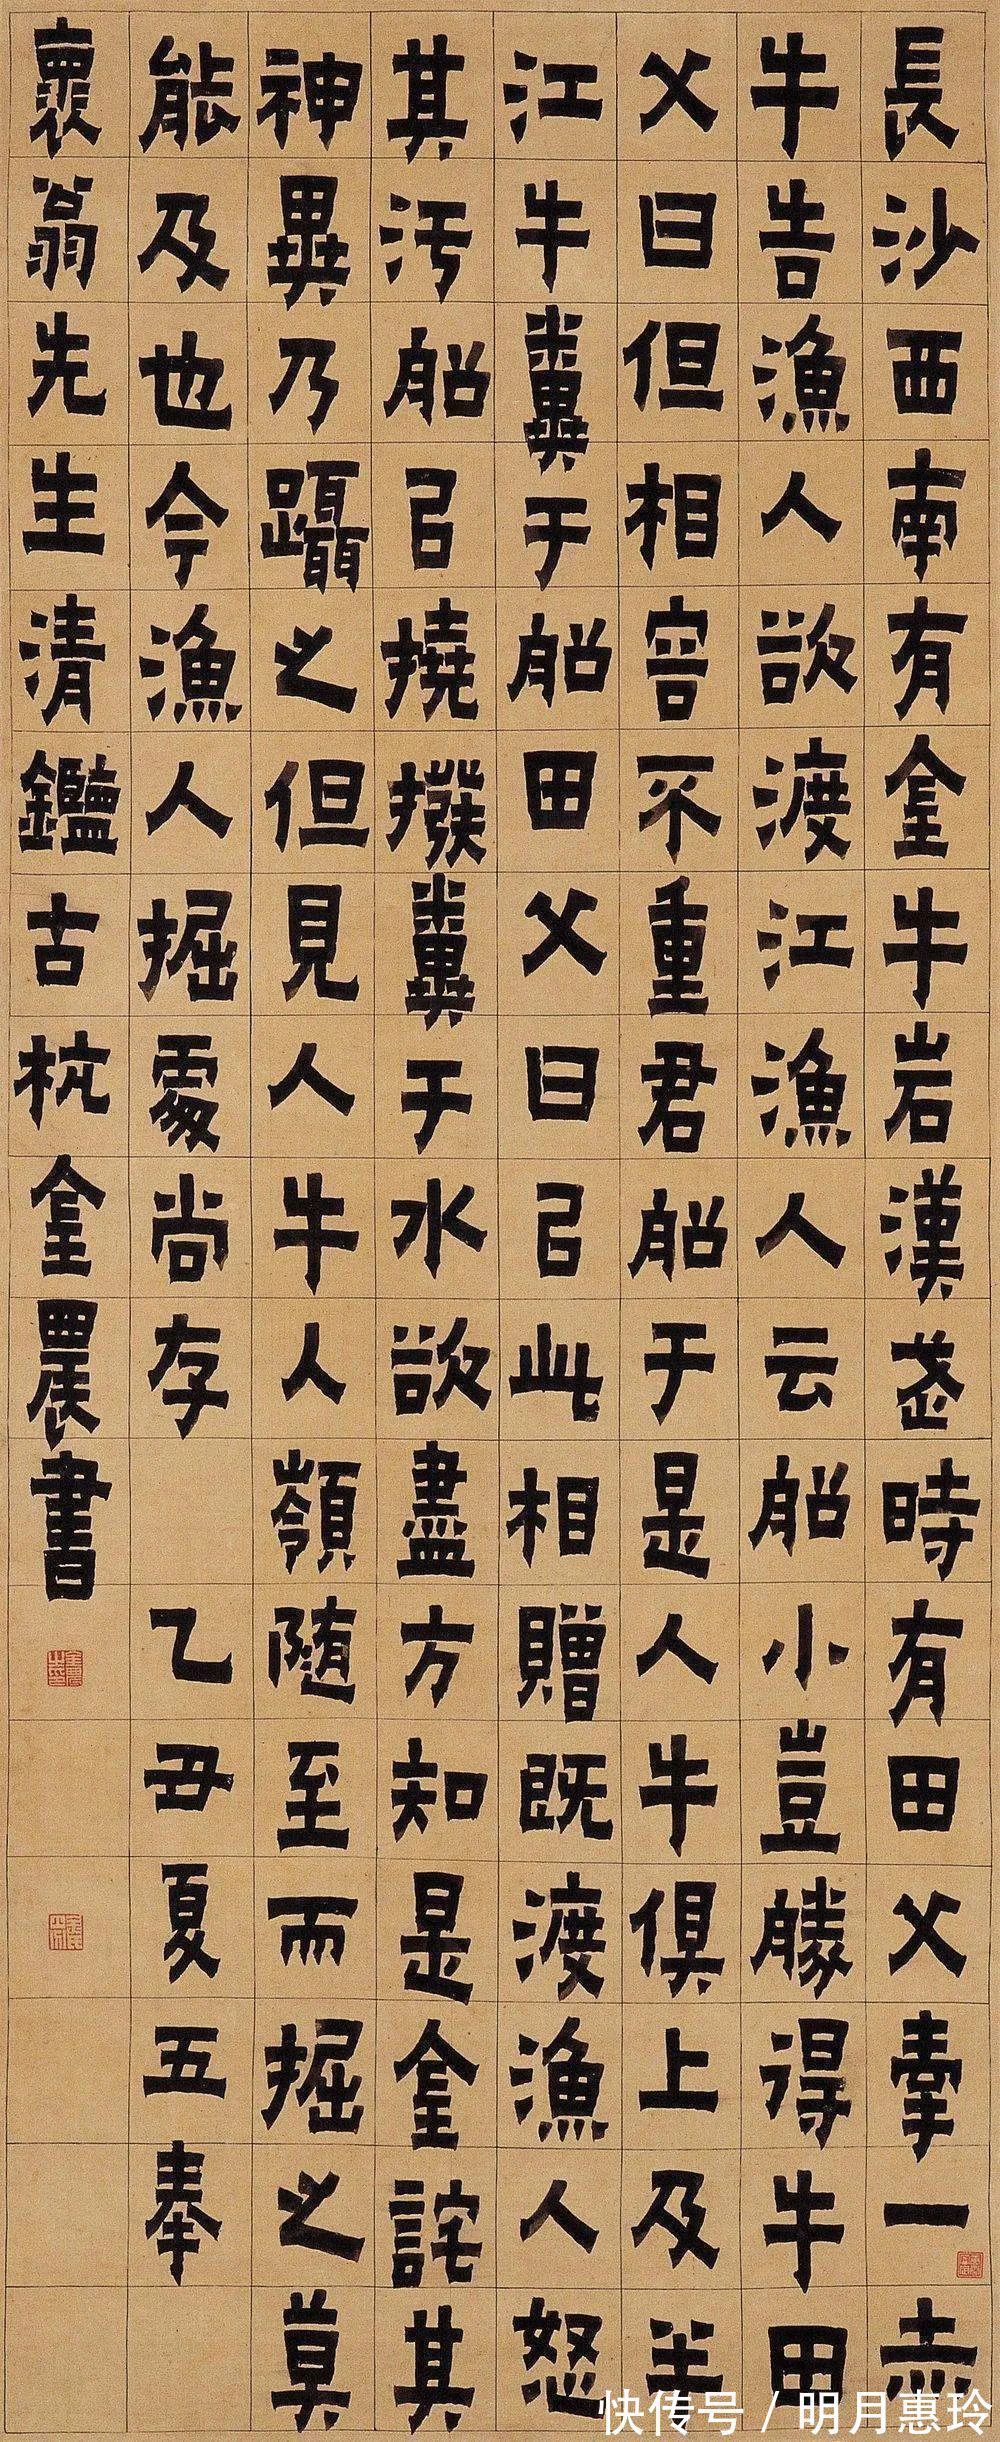 長沙西南有金牛岩漢武時有田父牽一赤
牛告漁人欲渡江漁人云船小豈勝得牛田
父曰但相容不重君船于是人牛俱上及半
江牛糞于船田父曰以此相贈既渡漁人怒
其污船以撓撥糞于水欲盡方知是金詫其
神異乃躡之但見人牛入嶺随至而掘之莫
能及也今漁人掘處尚存 乙丑夏五奉
褱翁先生清鑑古杭金農書
快传号 / 明月惠玲